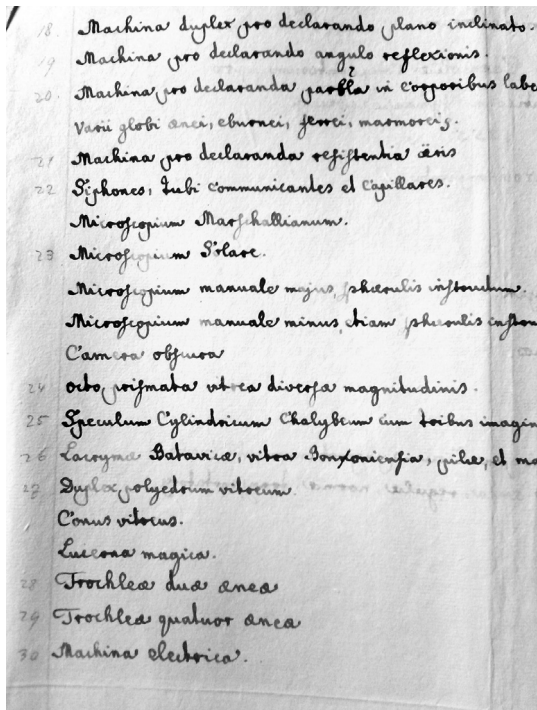 18. Machina duplex pro declarando plano inclinato.
19 Machina pro declarando angulo reflexionis.
20. Machina pro declaranda parbla in Corporibus labe
varii globi ænei, eburnei, ferrei, marmoreis.
21 Machina pro declaranda resistentia äeris
22 Siphones, Tubi Communicantes et Capillares.
Microscopium Marschallianum.
23 Microscopium Solare.
Microscopium manuale majus, sphærulis instructum.
Microscopium manuale minus, etiam sphærulis instru
Camera obscura
24 octo prismata vitrea diversæ magnitudinis.
25 Speculum Cylindricum Chalybeum cum tribus imagin
26 Lacrymæ Batavicæ, vitra Bononiensia, pilæ, et ma
27 Duplex polyedrum vitreum.
Conus vitreus.
Lucerna magica.
28 Trochleæ duæ æneæ
29 Trochleæ quatuor æneæ
30 Machina electrica.